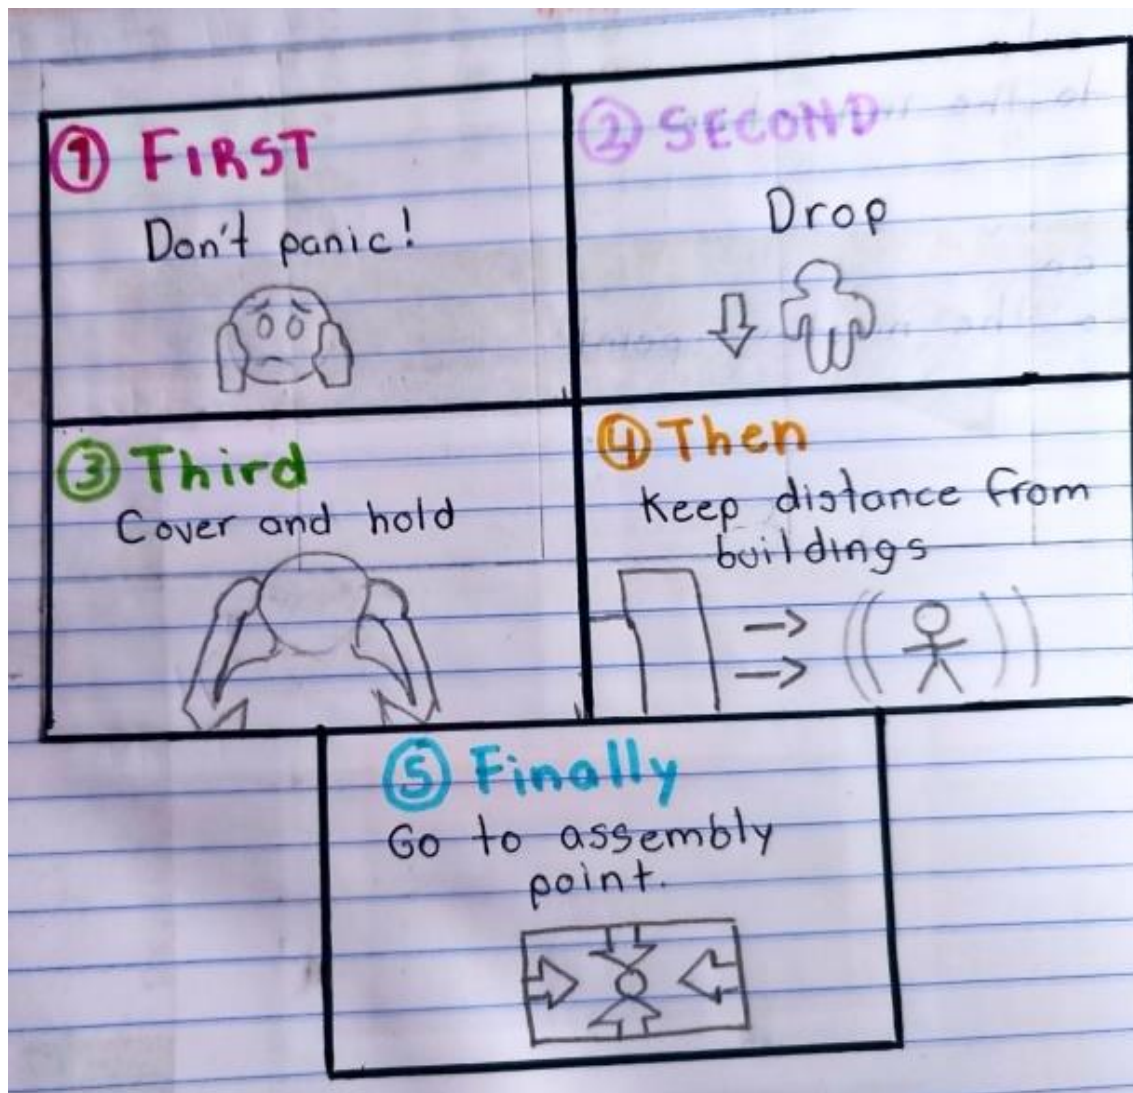 ① FIRST
Don't panic!
② SECOND
Drop
③ Third
Cover and hold
④ Then
Keep distance from
buildings
⑤ Finally
Go to assembly
point.